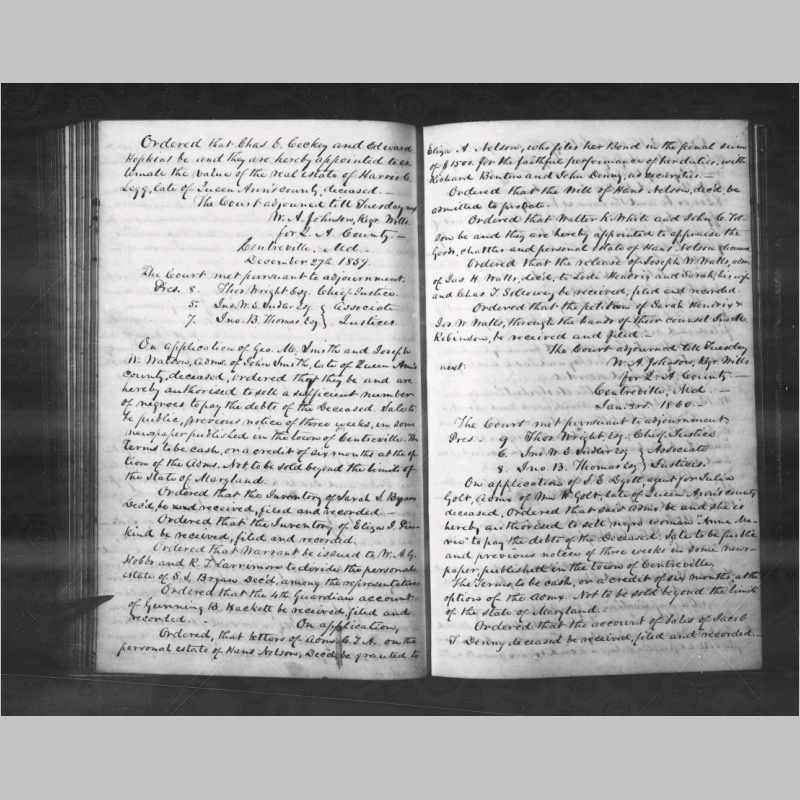 Ordered that Chas. C. Cockey and Edward
Hopkins be and they are hereby appointed to es
timate the value of the real estate of Harris C.
Legg, late of Queen Ann's county, deceased.—
The Court adjourned till Tuesday next
W. A. Johnson, Regr. Wills
for Q. A. County.—
Centreville, Md.
December 27th 1859.
The Court met pursuant to adjournment.
Pres. 8. Thos. Wright Esq. Chief Justice.
5. Jno. W. E. Sudler Esq } Associate
7. Jno. B. Thomas Esq } Justices
On application of Geo. M. Smith and Joseph
W. Watson, Adms. of John Smith, late of Queen Ann's
county, deceased, ordered that they be and are
hereby authorised to sell a sufficient number
of negroes to pay the debts of the Deceased. Sale to
be public, previous notice of three weeks, in some
newspaper published in the town of Centreville. The
terms to be cash, or a credit of six months at the op
tion of the Adms. Not to be sold beyond the limits of
the State of Maryland.
Ordered that the Inventory of Sarah L. Bryan
Dec'd, be received, filed and recorded.—
Ordered that the Inventory of Eliza J.
kind be received, filed and recorded.
Ordered that Warrant be issued to W. A. G.
Hobbs and R. T. Larrimore to divide the personal
estate of S. L. Bryan Dec'd, among the representatives
Ordered that the 4th Guardian account
of Gunning B. Hackett be received, filed and
recorded. On application,
Ordered, that letters of Adms. C. T. A. on the
personal estate of Hans Nelson, Dec'd, be granted to
Eliza A. Nelson, who files her Bond in the penal sum
of $1500. for the faithful performance of her duties, with
Richard Benton and John Denny, as securities.—
Ordered that the Will of Hans Nelson, dec'd be
admitted to probate.
Ordered that Walter K. White and John C. Tol
son be and they are hereby appointed to appraise the
Goods, chatter and personal estate of Hans Nelson deceased
Ordered that the release of Joseph W. Watts, adm.
of Jas. H. Watts, dec'd, to Lodi Hendrix and Sarah, his wife
and Chas. T. Solloway be received, filed and recorded
Ordered that the petition of Sarah Hendrix &
Jos. W. Watts, through the hands of their counsel Jno. M.
Robinson, be received and filed.—
The Court adjourned till Tuesday
next. W. A. Johnson, Regr. Wills
for Q. A. County—
Centreville, Md.—
Jan. 3rd. 1860.—
The Court met pursuant to adjournment,
Pres. 9. Thos. Wright, Esq. Chief Justice
6. Jno. W. E. Sudler Esq } Associate
8. Jno. B. Thomas Esq } Justices.
On application of J. E. Dyott, agent for Julia
Golt, Admx of Wm. W. Golt, late of Queen Ann's county
deceased, Ordered that said Admx be and she is
hereby authorised to sell negro woman "Anne Ma-
ria" to pay the debts of the Deceased. Sale to be public
and previous notice of three weeks in some news-
paper, published in the town of Centreville,
The Terms, to be cash, or a credit of six months, at the
option of the Admx. Not to be sold beyond the limits
of the state of Maryland.
Ordered that the account of Sales of Jacob
T. Denny deceased be received, filed and recorded.—